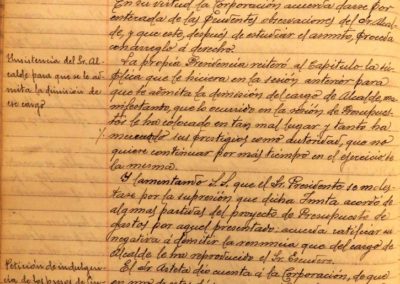 En su virtud la Corporación acuerda darse por
enterada de las prudentes observaciones del Sr. Alcal-
de, y que este, después de estudiar el asunto, proceda
con arreglo a derecho.
Insistencia del Sr. Al-
calde para que se le ad-
mita la dimisión de
ese cargo
La propia Presidencia reiteró al Capítulo la sú-
plica que le hiciera en la sesión anterior para
que se admita la dimisión del cargo de Alcalde, ma-
nifestando, que lo ocurrido en la sesión de Presupues-
tos le ha colocado en tan mal lugar y tanto ha
sus prestigios como autoridad, que no
quiere continuar por más tiempo en el ejercicio de
la misma.
Y lamentando S.S. que el Sr. Presidente se moles-
tase por la supresión que dicha Junta acordó de
algunas partidas del proyecto de Presupuesto de
gastos por aquel presentado: acuerda ratificar su
negativa á admitir la renuncia que del cargo de
Alcalde le ha reproducido el Sr. Escudero.
Petición de indulgen-
cia de los presos de
El Sr. Arteta dio cuenta á la Corporación, de que